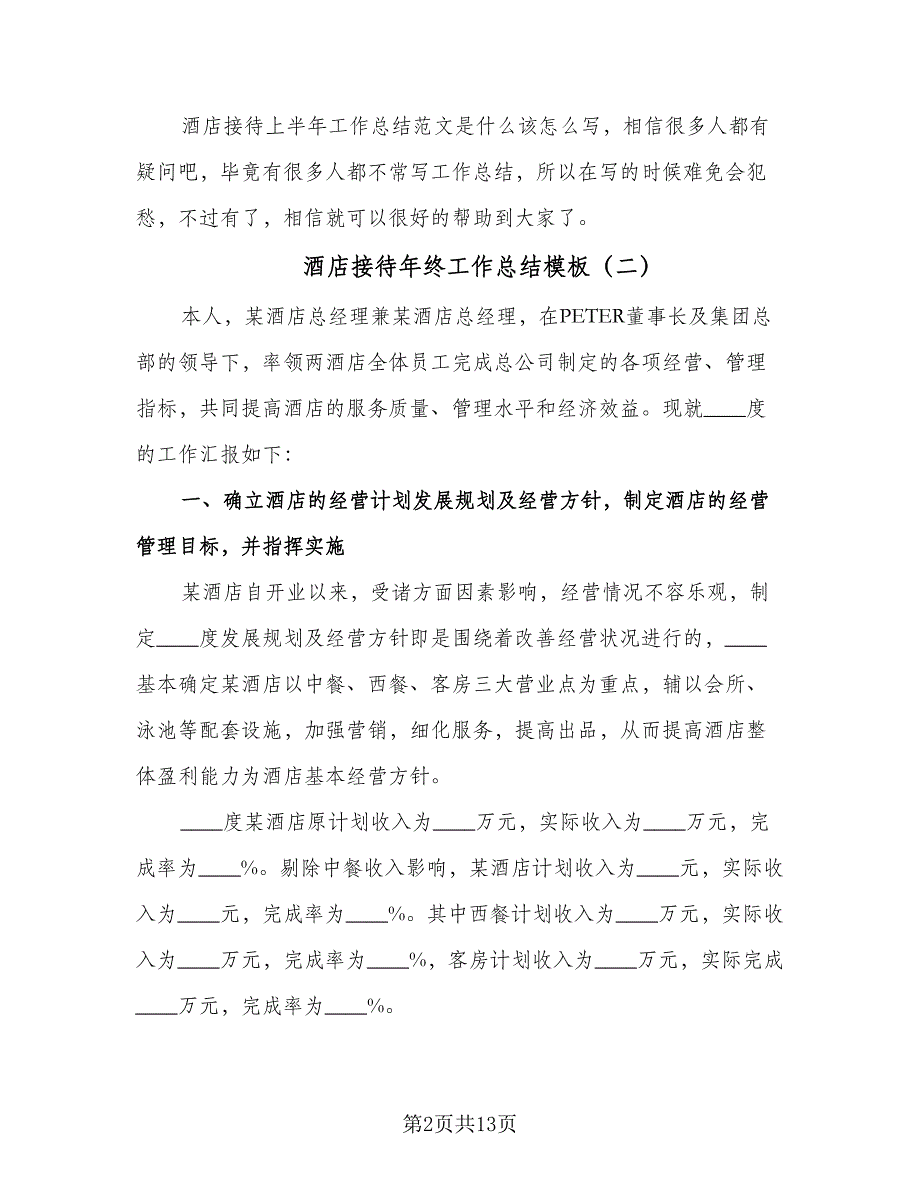 酒店接待上半年工作总结范文是什么该怎么写，相信很多人都有
疑问吧，毕竟有很多人都不常写工作总结，所以在写的时候难免会犯
愁，不过有了，相信就可以很好的帮助到大家了。
酒店接待年终工作总结模板（二）
本人，某酒店总经理兼某酒店总经理，在PETER董事长及集团总
部的领导下，率领两酒店全体员工完成总公司制定的各项经营、管理
指标，共同提高酒店的服务质量、管理水平和经济效益。现就____度
的工作汇报如下：
一、确立酒店的经营计划发展规划及经营方针，制定酒店的经营
管理目标，并指挥实施
某酒店自开业以来，受诸方面因素影响，经营情况不容乐观，制
定____度发展规划及经营方针即是围绕着改善经营状况进行的，____
基本确定某酒店以中餐、西餐、客房三大营业点为重点，辅以会所、
泳池等配套设施，加强营销，细化服务，提高出品，从而提高酒店整
体盈利能力为酒店基本经营方针。
____度某酒店原计划收入为____万元，实际收入为____万元，完
成率为____%。剔除中餐收入影响，某酒店计划收入为____元，实际收
入为____元，完成率为____%。其中西餐计划收入为____万元，实际收
入为____万元，完成率为____%，客房计划收入为____万元，实际完成
____万元，完成率为____%。
第2页共13页